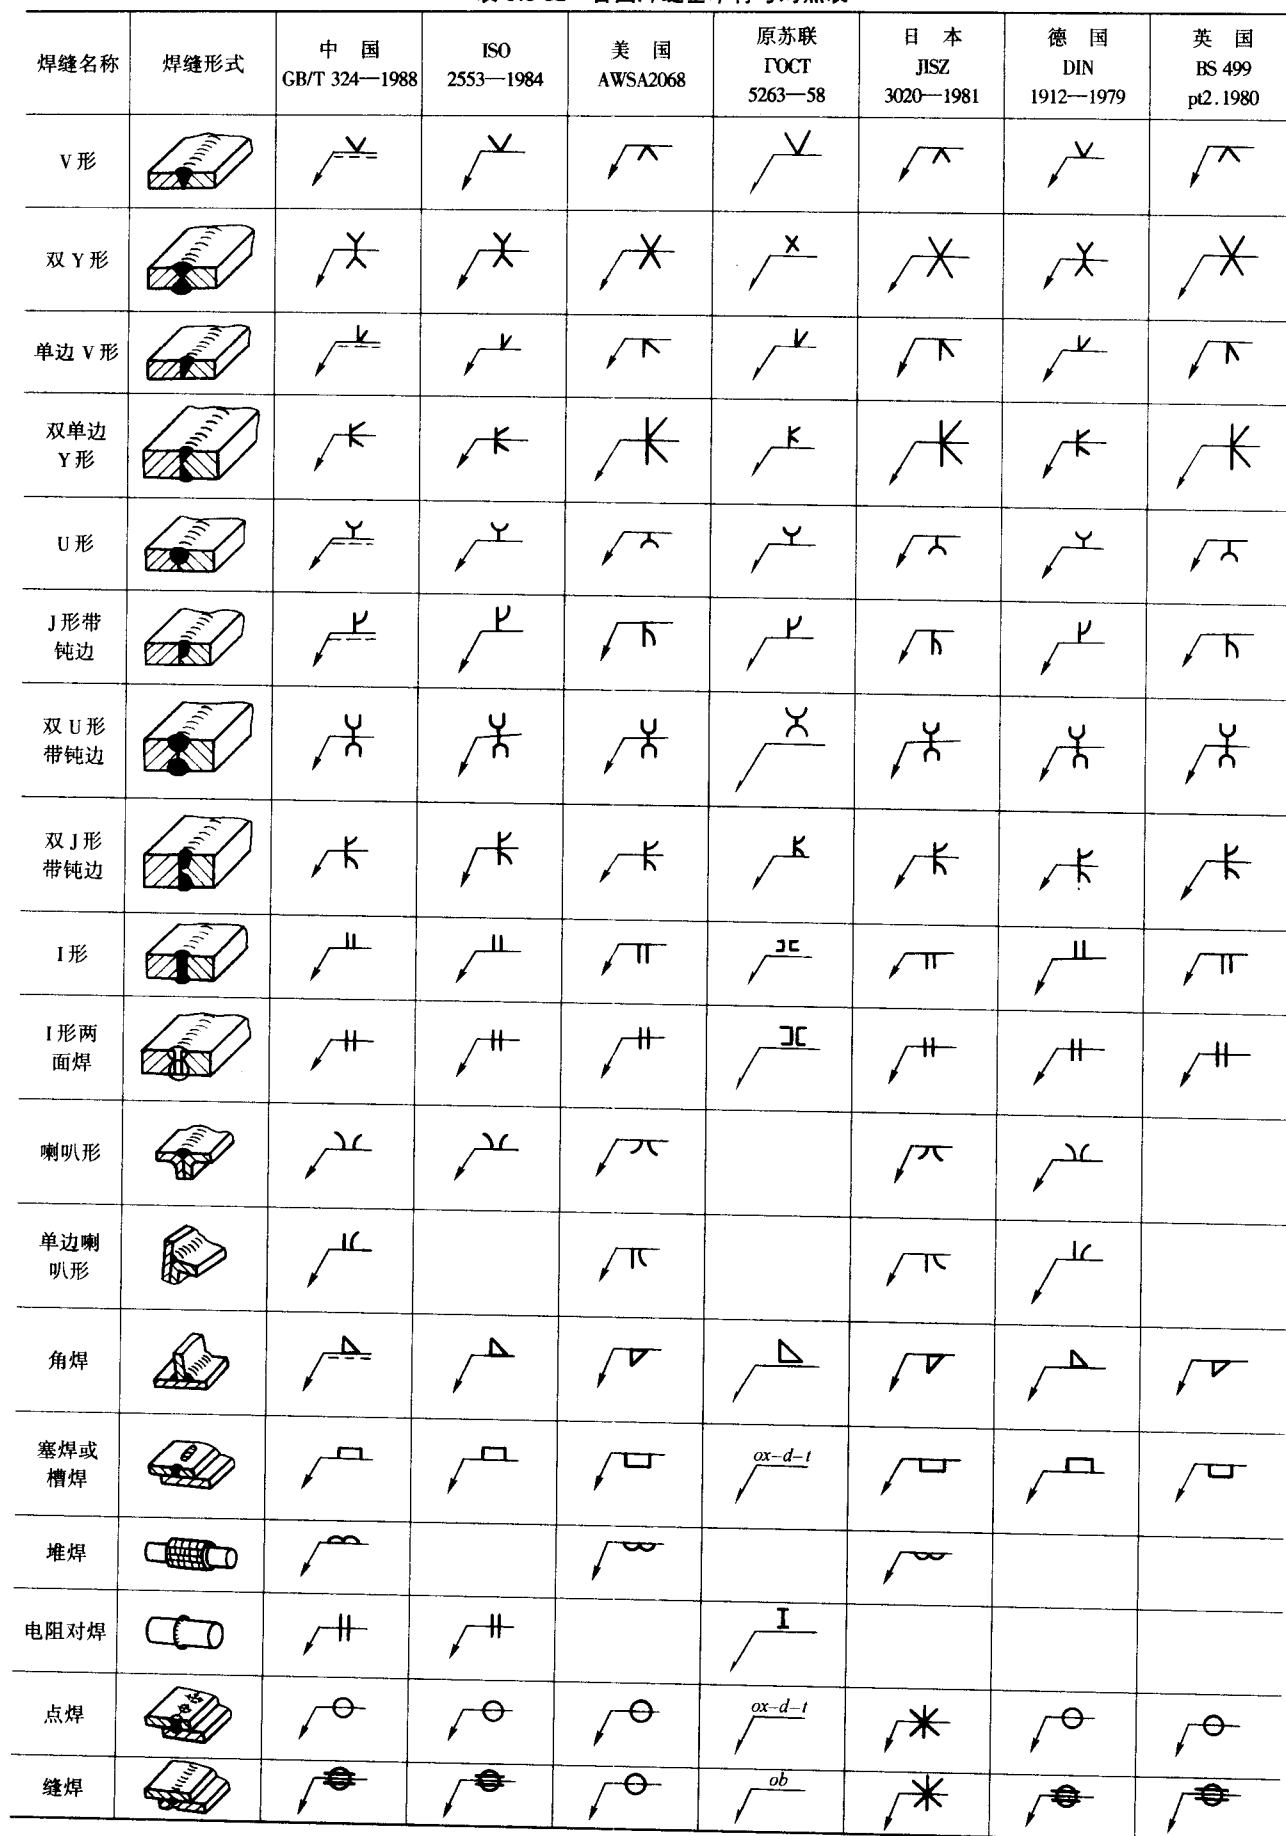 焊缝名称
焊缝形式
中 国
GB/T 324—1988
ISO
2553—1984
美 国
AWSA2068
原苏联
ГОСТ
5263—58
日 本
JISZ
3020—1981
德 国
DIN
1912—1979
英 国
BS 499
pt2.1980
V 形
双 Y 形
单边 V 形
双单边
Y 形
U 形
J 形带
钝边
双 U 形
带钝边
双 J 形
带钝边
I 形
I 形两
面焊
喇叭形
单边喇
叭形
角焊
塞焊或
槽焊
ox-d-t
堆焊
电阻对焊
点焊
ox-d-t
缝焊
ob